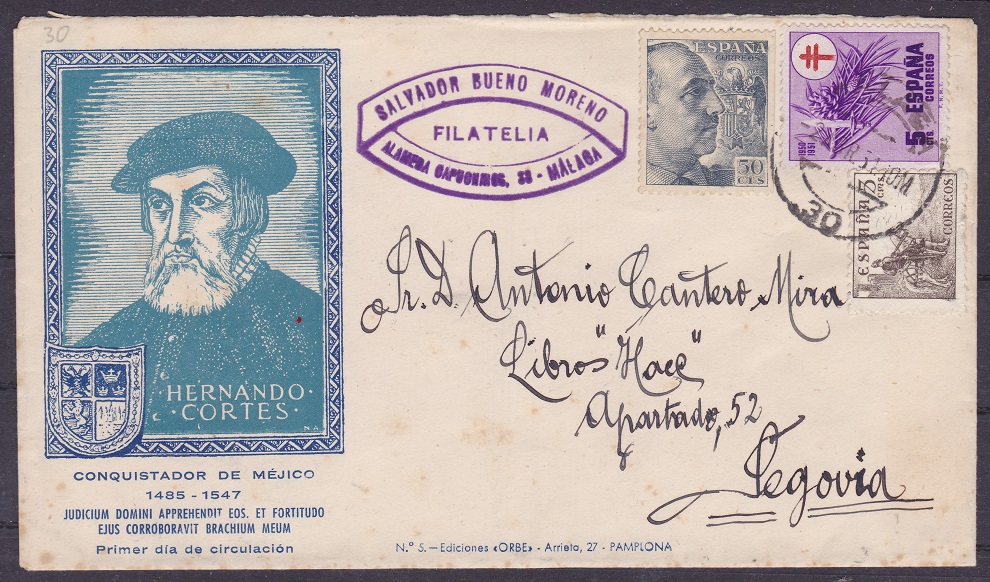 30
SALVADOR BUENO MORENO
FILATELIA
ALAMEDA CAPUCHINOS, 23 - MÁLAGA
ESPAÑA
CORREOS
50
CTS
1950
1951
5 CTS
ESPAÑA
CORREOS
F.N.M.T.
30
ESPAÑA
5
CTS
CORREOS
Sr. D. Antonio Cantero Mira
Libros "Hace"
Apartado, 52
Segovia
HERNANDO
·CORTES·
M.A.
CONQUISTADOR DE MÉJICO
1485 - 1547
JUDICIUM DOMINI APPREHENDIT EOS. ET FORTITUDO
EJUS CORROBORAVIT BRACHIUM MEUM
Primer día de circulación
N.º 5.—Ediciones «ORBE» - Arrieta, 27 - PAMPLONA